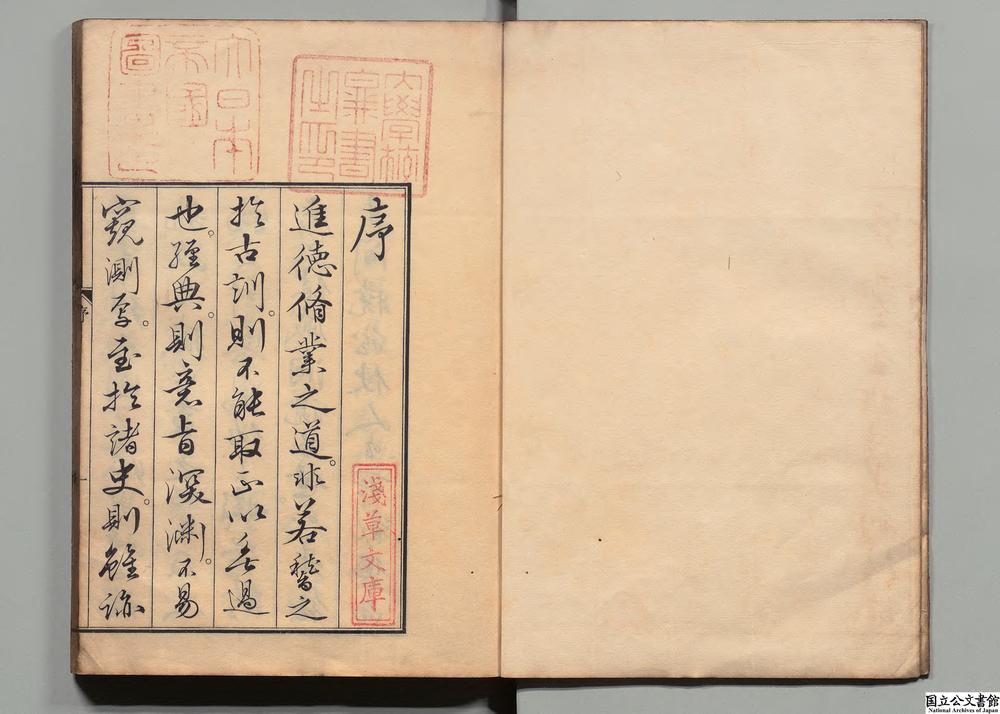 序
進德脩業之道。非若稽之
於古訓。則不能取正以無過
也。經典則意旨深淵。不易
窺測焉。至於諸史。則雖詠
淺草文庫
大學藏書之印
大日本帝國圖書印
序
国立公文書館
National Archives of Japan